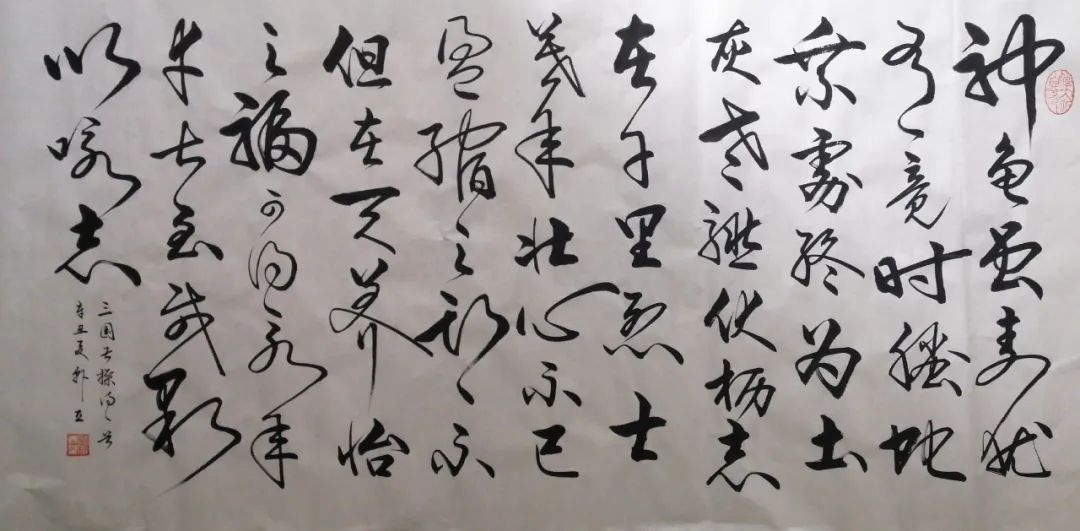 神龟虽寿犹
有竟时螣蛇
乘雾终为土
灰老骥伏枥志
在千里烈士
暮年壮心不已
盈缩之期不
但在天养怡
之福可得永年
幸甚至哉歌
以咏志
三国曹操诗一首
辛丑夏